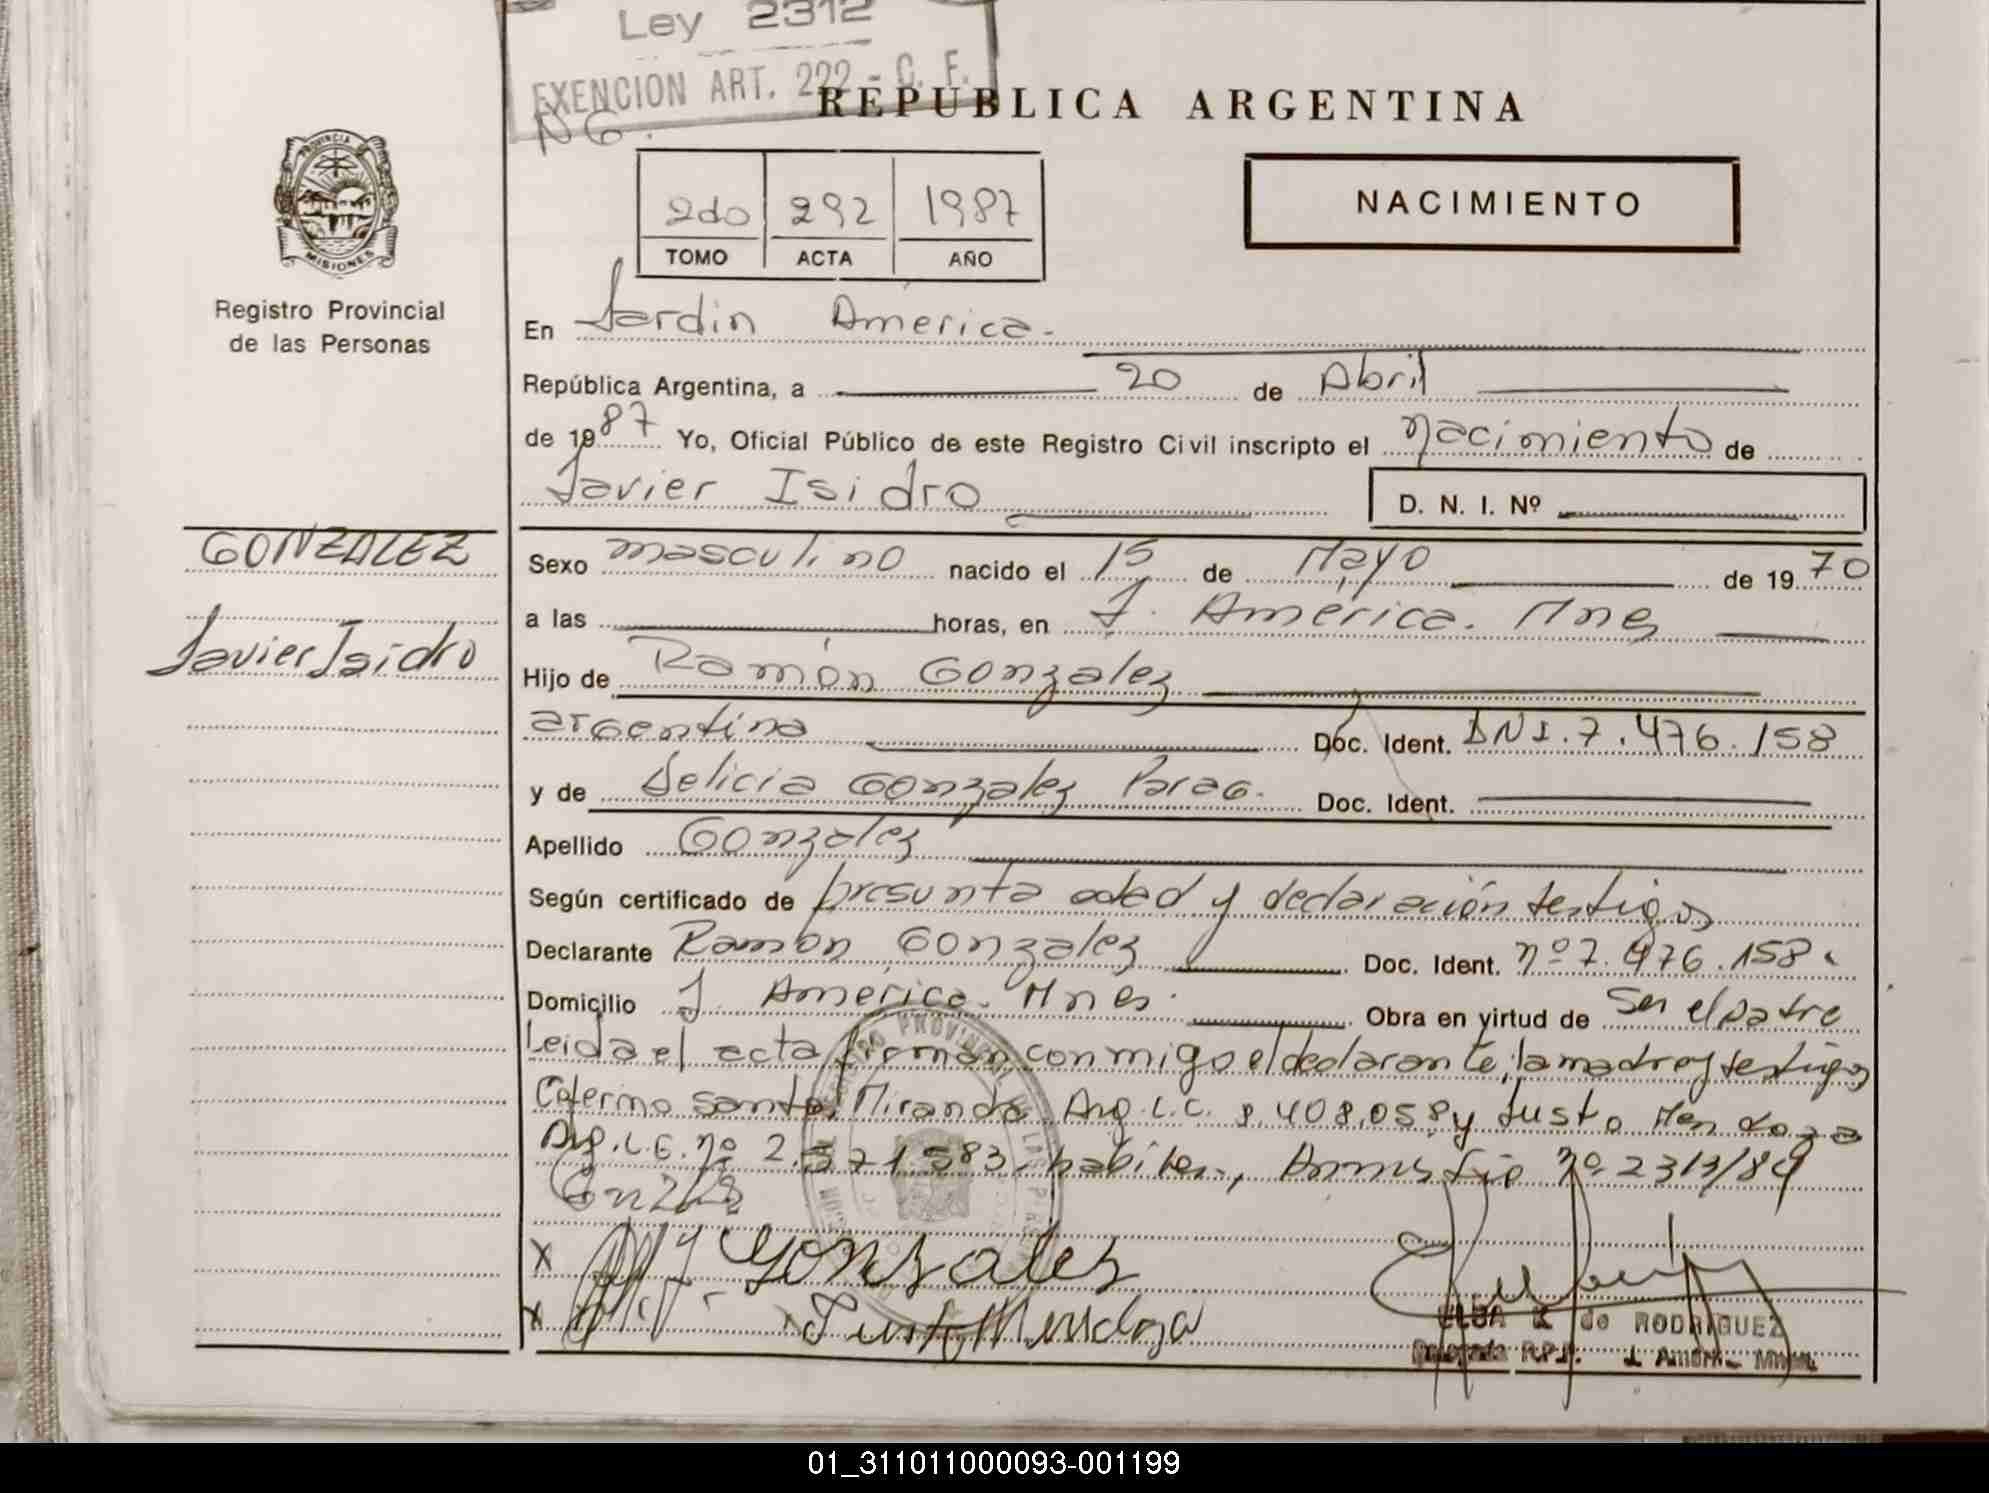 Ley 2312
EXENCION ART. 222 - C. F.
N G.
REPUBLICA ARGENTINA
PROVINCIA DE
MISIONES
Registro Provincial
de las Personas
2do 292 1987
TOMO ACTA AÑO
NACIMIENTO
En Jardin América.
República Argentina, a 20 de Abril
de 1987 Yo, Oficial Público de este Registro Civil inscripto el nacimiento de
Javier Isidro D. N. I. Nº
GONZALEZ
Javier Isidro
Sexo masculino nacido el 15 de Mayo de 1970
a las horas, en J. América. Mnes
Hijo de Ramón Gonzalez
argentina Doc. Ident. DNI. 7.476.158
y de Delicia Gonzalez Parag. Doc. Ident.
Apellido Gonzalez
Según certificado de presunta edad y declaración testigos
Declarante Ramón Gonzalez Doc. Ident. nº 7.476.158.
Domicilio J. América. Mnes. Obra en virtud de Ser el patre
Leida el acta firman conmigo el declarante, la madre y testigos
santo Miranda Arg. L.C. 8.408.058 y Justo Mendoza
Arg. L.E. nº 2.571.583 habiles, Amnistio nº 2313/84
X Gonzalez
X x Justo Mendoza
ELSA K. de RODRIGUEZ
Delegada R.P.P. J. Amér. - Mnes.
01_311011000093-001199